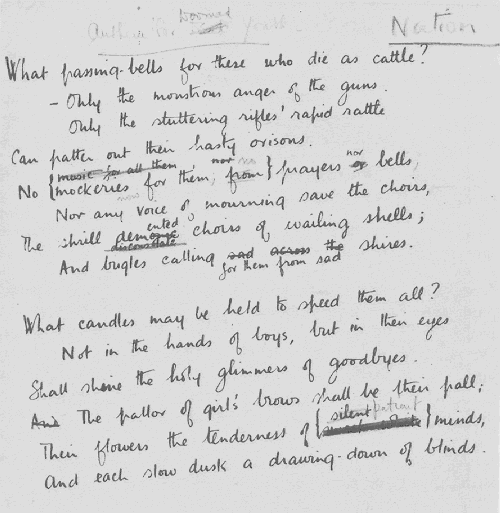 Anthem for Doomed Youth Nation
What passing-bells for these who die as cattle?
- Only the monstrous anger of the guns.
Only the stuttering rifles' rapid rattle
Can patter out their hasty orisons.
music for all them nor no
No { mockeries for them; from } prayers nor or bells,
Nor any voice of mourning save the choirs,
The shrill demented choirs of wailing shells;
disconsolate
And bugles calling sad across the shires.
for them from sad
What candles may be held to speed them all?
Not in the hands of boys, but in their eyes
Shall shine the holy glimmers of goodbyes.
And The pallor of girls' brows shall be their pall;
silent patient
Their flowers the tenderness of { } minds,
And each slow dusk a drawing-down of blinds.